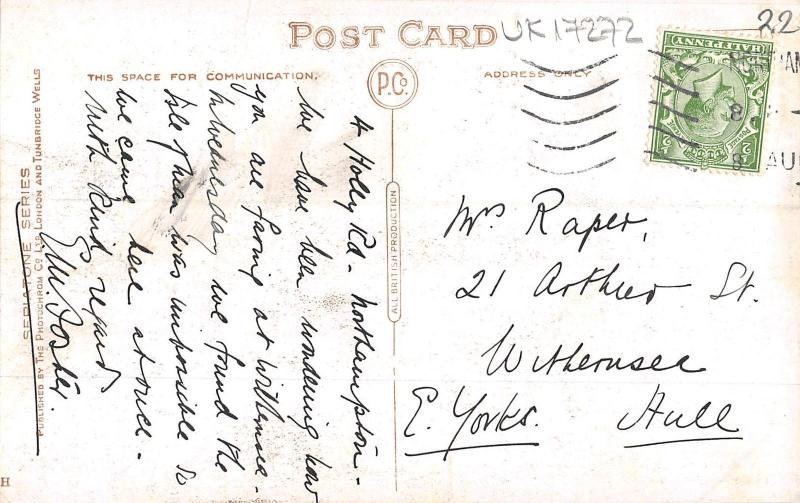 POST CARD
UK 17272
22
THIS SPACE FOR COMMUNICATION.
P.Co.
ADDRESS ONLY
HALFPENNY
8 AU
4 Holly Rd - Northampton -
We have been wondering how
you are faring at Withernsea -
Wednesday we found the
was impossible so
we came here at once -
With Kind regards
E.M. Foster.
Mrs Raper,
21 Arthur St.
Withernsea
E. Yorks. Hull
ALL BRITISH PRODUCTION
SEPIATONE SERIES
PUBLISHED BY THE PHOTOCHROM CO LTD LONDON AND TUNBRIDGE WELLS
H